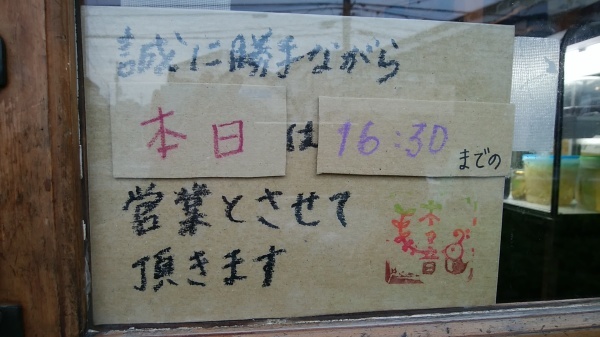 誠に勝手ながら
本日は16:30までの
営業とさせて
頂きます